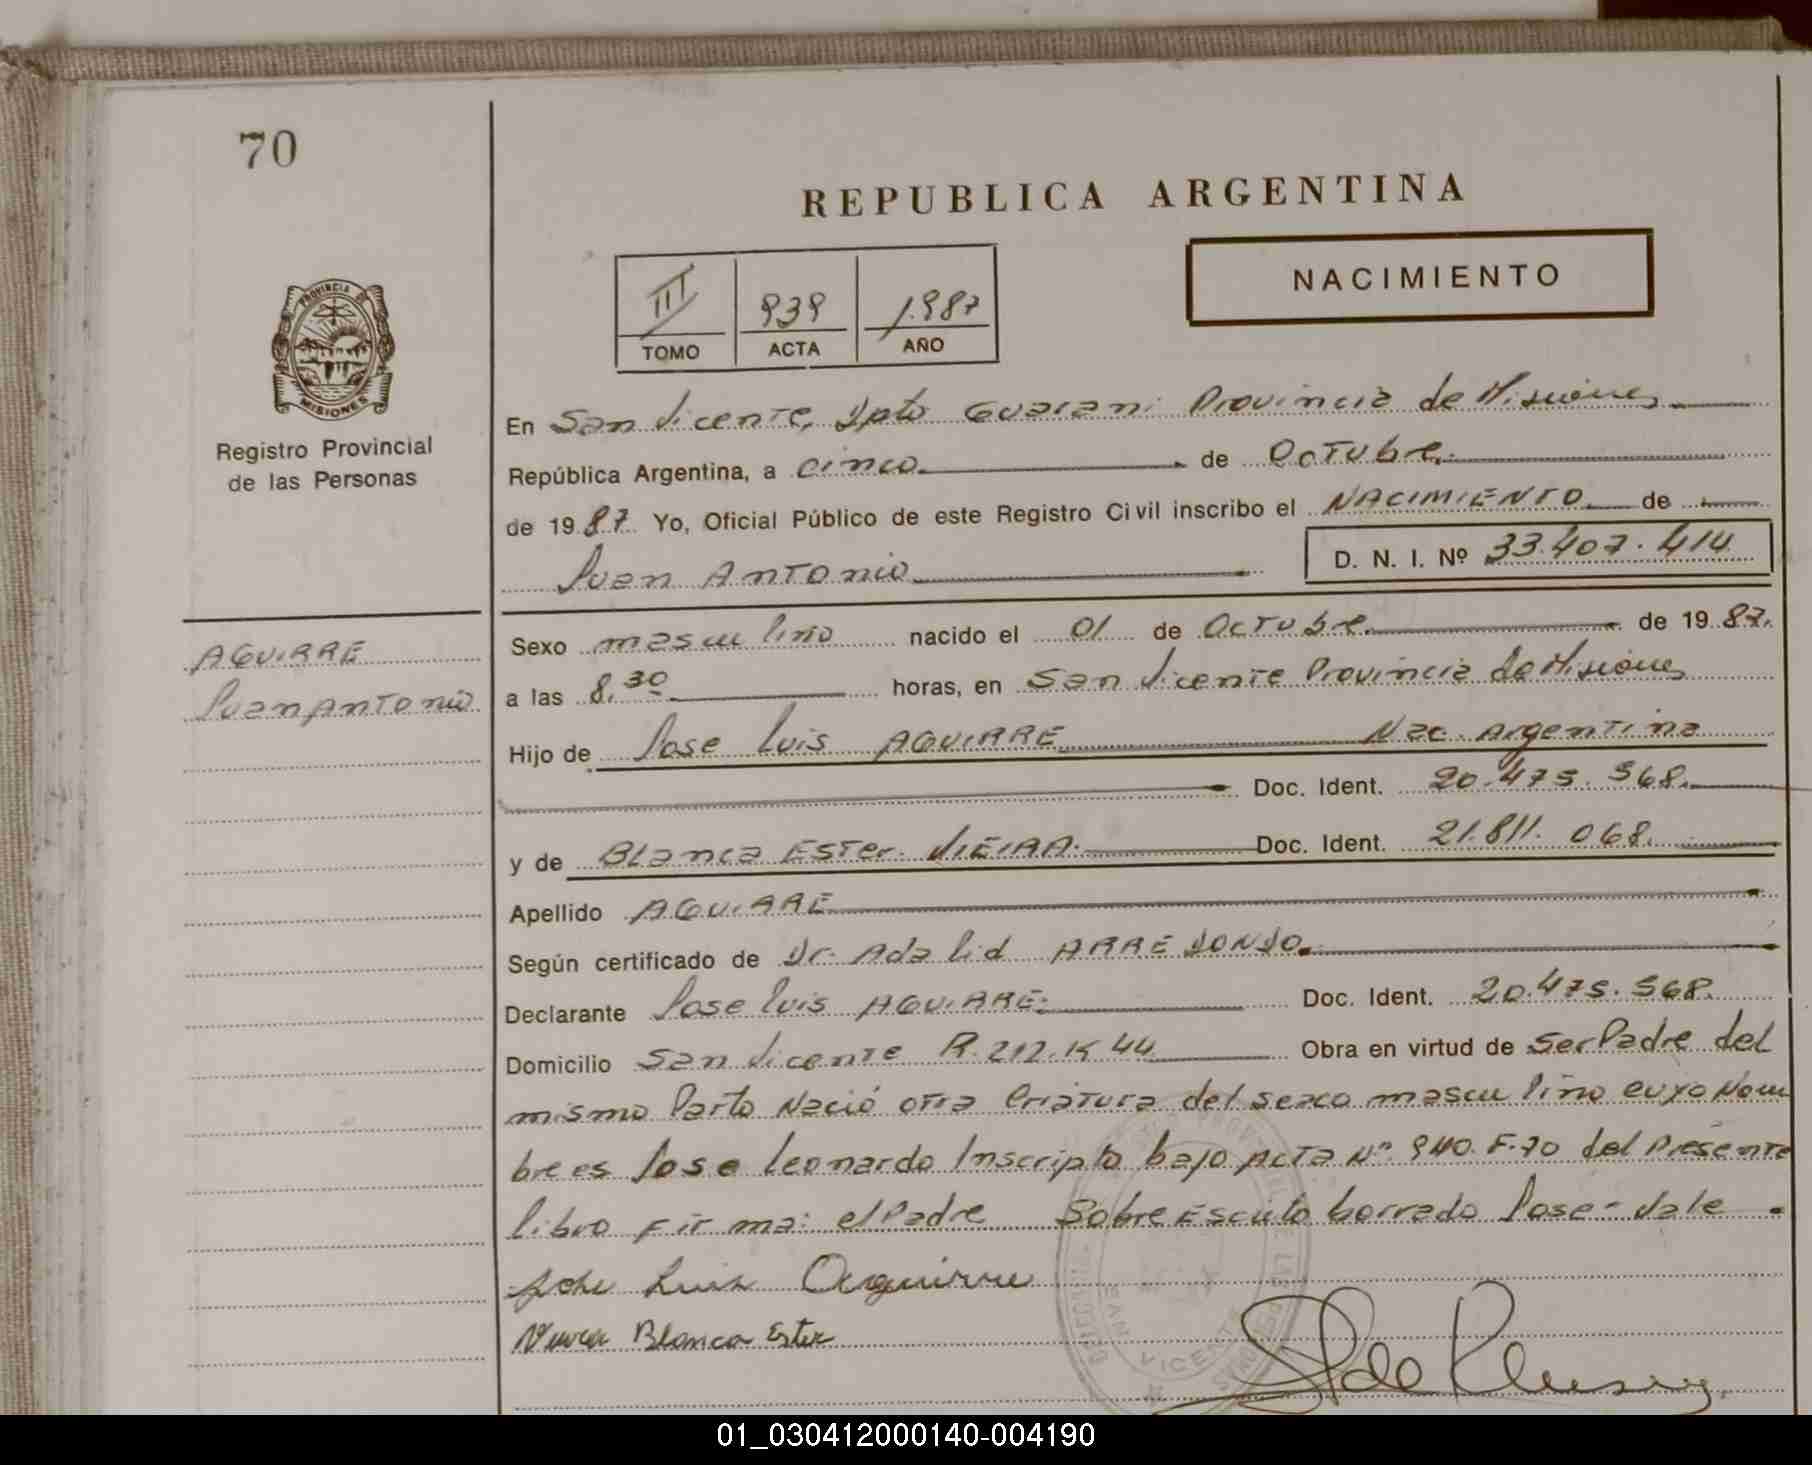 70
REPUBLICA ARGENTINA
NACIMIENTO
III 939 1.987
TOMO ACTA AÑO
PROVINCIA DE
MISIONES
Registro Provincial
de las Personas
En San Vicente, Dpto Guarani Provincia de Misiones
República Argentina, a cinco de Octubre
de 1987. Yo, Oficial Público de este Registro Civil inscribo el NACIMIENTO de
Juan Antonio D. N. I. Nº 33.407.414
AGUIRRE
Juan Antonio
Sexo masculino nacido el 01 de Octubre de 1987.
a las 8.30 horas, en San Vicente Provincia de Misiones
Hijo de Jose Luis AGUIRRE Nac. Argentina
Doc. Ident. 20.475.568.
y de Blanca Ester VIEIRA. Doc. Ident. 21.811.068.
Apellido AGUIRRE
Según certificado de Dr. Adalid ARREDONDO.
Declarante Jose Luis AGUIRRE. Doc. Ident. 20.475.568.
Domicilio San Vicente R.212.K 44 Obra en virtud de Ser Padre del
mismo Parto Nació otra Criatura del sexo masculino cuyo Nom
bre es Jose Leonardo Inscripto bajo Acta Nº 940.F.70 del Presente
libro Firma: el Padre Sobre Escrito borrado Jose - Vale
Jose Luis Aguirre
Blanca Ester
VICENTE
01_030412000140-004190